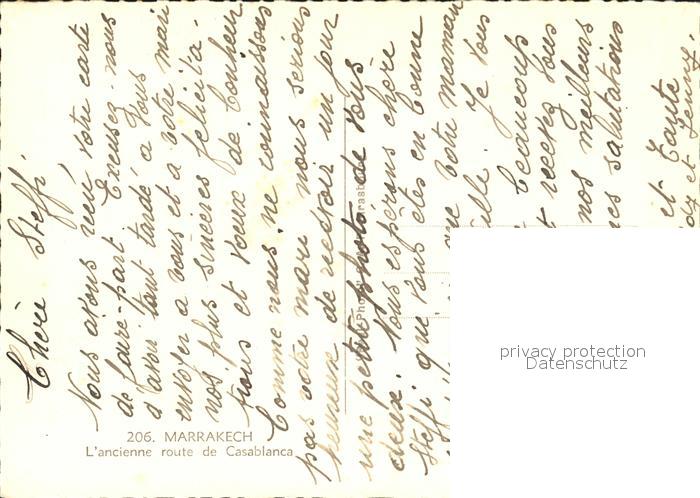 Chère Steffi,
Nous avons reçu votre carte
de faire-part. Excusez-nous
d'avoir tant tardé à vous
envoyer à vous et à votre mari
nos plus sincères félicita-
tions et vœux de bonheur
Comme nous ne connaissons
pas votre mari nous serions
heureux de recevoir un jour
une petite photo de vous
deux. Nous espérons chère
Steffi que vous êtes en bonne
que votre maman
Je vous
beaucoup
recevez tous
nos meilleurs
salutations
et Tante
206. MARRAKECH
L'ancienne route de Casablanca
privacy protection
Datenschutz